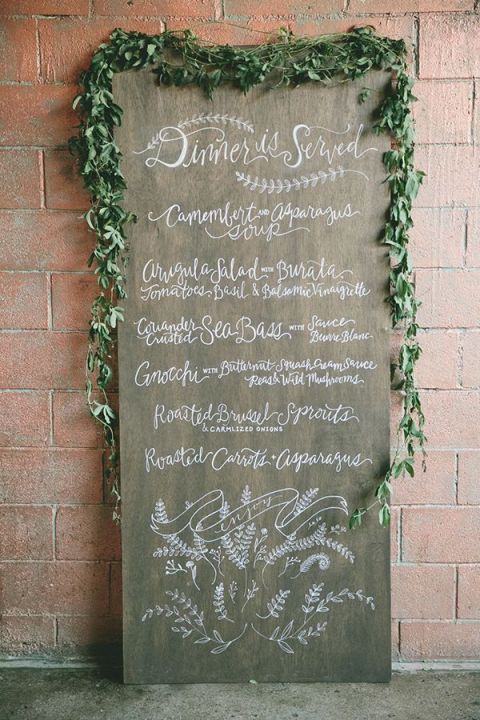 Dinner is Served
Camembert AND Asparagus
Soup
Arugula Salad WITH Burata
Tomatoes Basil & Balsamic Vinaigrette
Coriander Crusted Sea Bass WITH Sauce Beurre Blanc
Gnocchi WITH Butternut Squash Cream Sauce
Peas & Wild Mushrooms
Roasted Brussel Sprouts
& CARMLIZED ONIONS
Roasted Carrots + Asparagus
enjoy